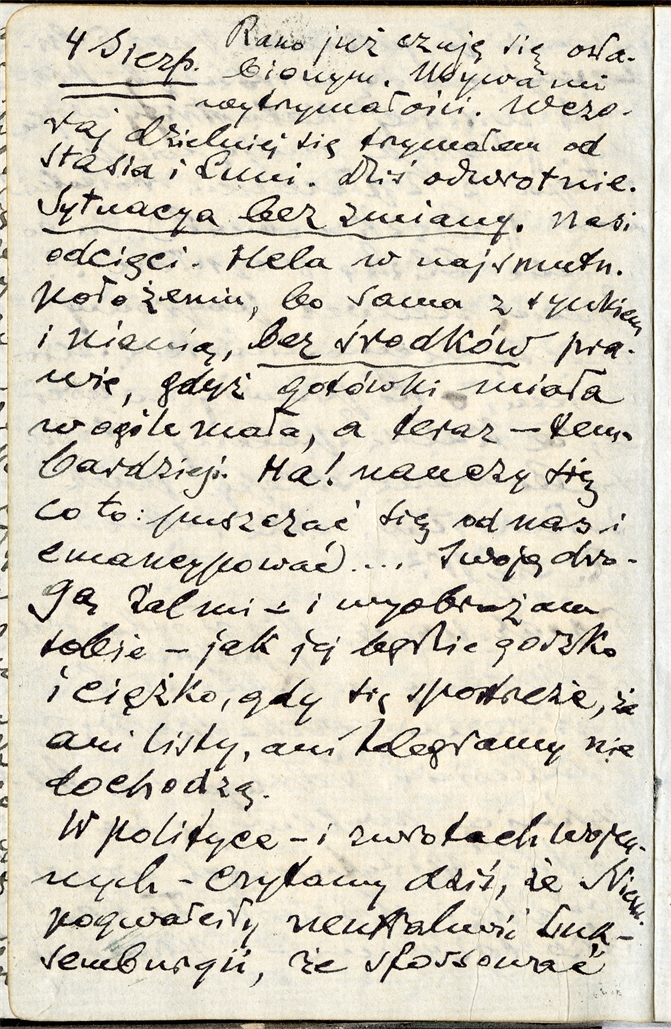 4 Sierp. Rano już czuję się osła-
bionym. Używa mi
wytrzymałości. Wczo-
raj dzielniej się trzymałem od
Stasia i Luni. Dziś odwrotnie.
Sytuacya bez zmiany. Nasi
odcięci. Hela w najsmutn.
położeniu, bo sama z synkiem
i nianią, bez środków pra-
wie, gdyż gotówki miała
wogóle mało, a teraz – tem-
bardziej. Ha! nauczy się
co to: puszczać się od nas i
emancypować.... Swoją dro-
gą żal mi – i wyobrażam
sobie – jak jej będzie gorzko
i ciężko, gdy się spostrzeże, że
ani listy, ani telegramy nie
dochodzą.
W polityce – i zwrotach wojen-
nych – czytamy dziś, że Niem.
pogwałciły neutralność Luk-
semburgii, że sforsować